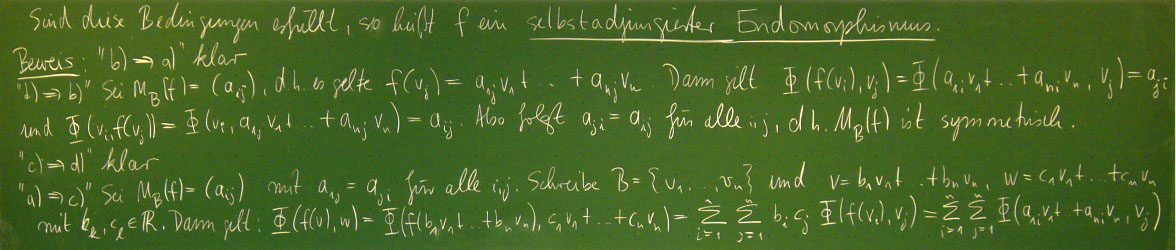 Sind diese Bedingungen erfüllt, so heißt f ein selbstadjungierter Endomorphismus.
Beweis: "b) ⇒ a)" klar
"d) ⇒ b)" Sei M_B(f) = (a_ij), d.h. es gelte f(v_j) = a_1j v_1 + ... + a_nj v_n. Dann gilt Φ(f(v_i), v_j) = Φ(a_1i v_1 + ... + a_ni v_n, v_j) = a_ji
und Φ(v_i, f(v_j)) = Φ(v_i, a_1j v_1 + ... + a_nj v_n) = a_ij. Also folgt a_ji = a_ij für alle i,j, d.h. M_B(f) ist symmetrisch.
"c) ⇒ d)" klar
"a) ⇒ c)" Sei M_B(f) = (a_ij) mit a_ij = a_ji für alle i,j. Schreibe B = {v_1, ..., v_n} und v = b_1 v_1 + ... + b_n v_n, w = c_1 v_1 + ... + c_n v_n
mit b_k, c_l ∈ ℝ. Dann gilt: Φ(f(v), w) = Φ(f(b_1 v_1 + ... + b_n v_n), c_1 v_1 + ... + c_n v_n) = Σ_{i=1}^n Σ_{j=1}^n b_i c_j Φ(f(v_i), v_j) = Σ_{i=1}^n Σ_{j=1}^n Φ(a_1i v_1 + a_ni v_n, v_j)